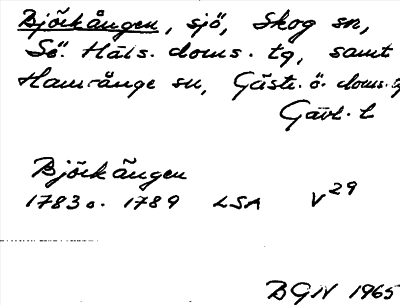 Björkången, sjö, Skog sn,
Sö. Häls. doms. tg, samt
Hamrånge sn, Gästr. ö. doms. tg
Gävl. l
Björkängen
1783 o. 1789 LSA V29
BGN 1965